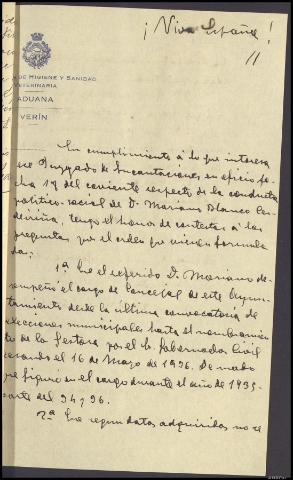 ¡Viva España!
11
DE HIGIENE Y SANIDAD
VETERINARIA
ADUANA
VERÍN
En cumplimiento á lo que interesa
ese Juzgado de Incautaciones en oficio fe-
cha 17 del corriente respecto de la conducta
politico-social de D. Mariano Blanco
tengo el honor de contestar á las
preguntas por el orden que vienen formula
das:
1ª Que el referido D. Mariano de-
sempeñó el cargo de Concejal de este Ayun-
tamiento desde la última convocatoria de
elecciones municipales hasta el nombramien
to de la Gestora por el Sr. Gobernador Civil
cesando el 16 de Marzo de 1936. De modo
que figuró en el cargo durante el año de 1935-
parte del 34 y 36.
2ª Que segun datos adquiridos no se